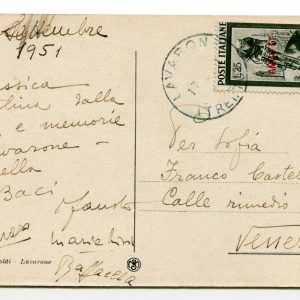 Settembre
1951
ssica
lina dalla
e memorie
avarone -
ella
Baci
Fausto
Maria Lina
Raffaella
oldi - Lavarone
LAVARON
(TREN
POSTE ITALIANE
L.25
Per Sofia
Franco Castel
Calle rimedio
Venez